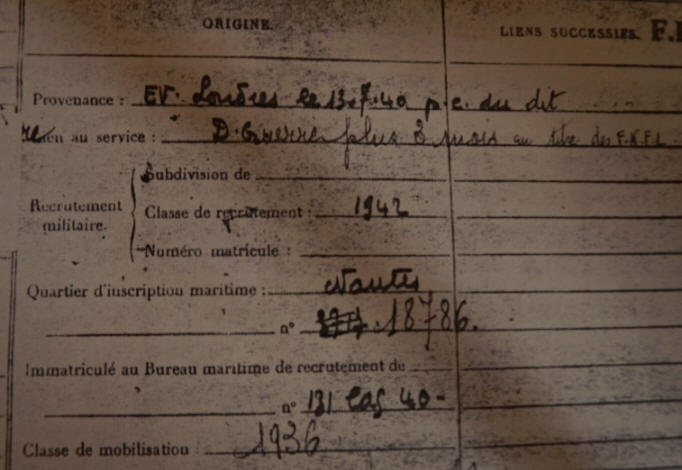 ORIGINE.
LIENS SUCCESSIFS.
Provenance : EV. Londres le 13.7.40 p.c. du dit
Lien au service : D. Guerre plus 3 mois au titre des F.N.F.L.
Subdivision de
Recrutement militaire.
Classe de recrutement : 1942
Numéro matricule :
Quartier d'inscription maritime : Nantes
n° 18786.
Immatriculé au Bureau maritime de recrutement de
n° 131 40-
Classe de mobilisation : 1936